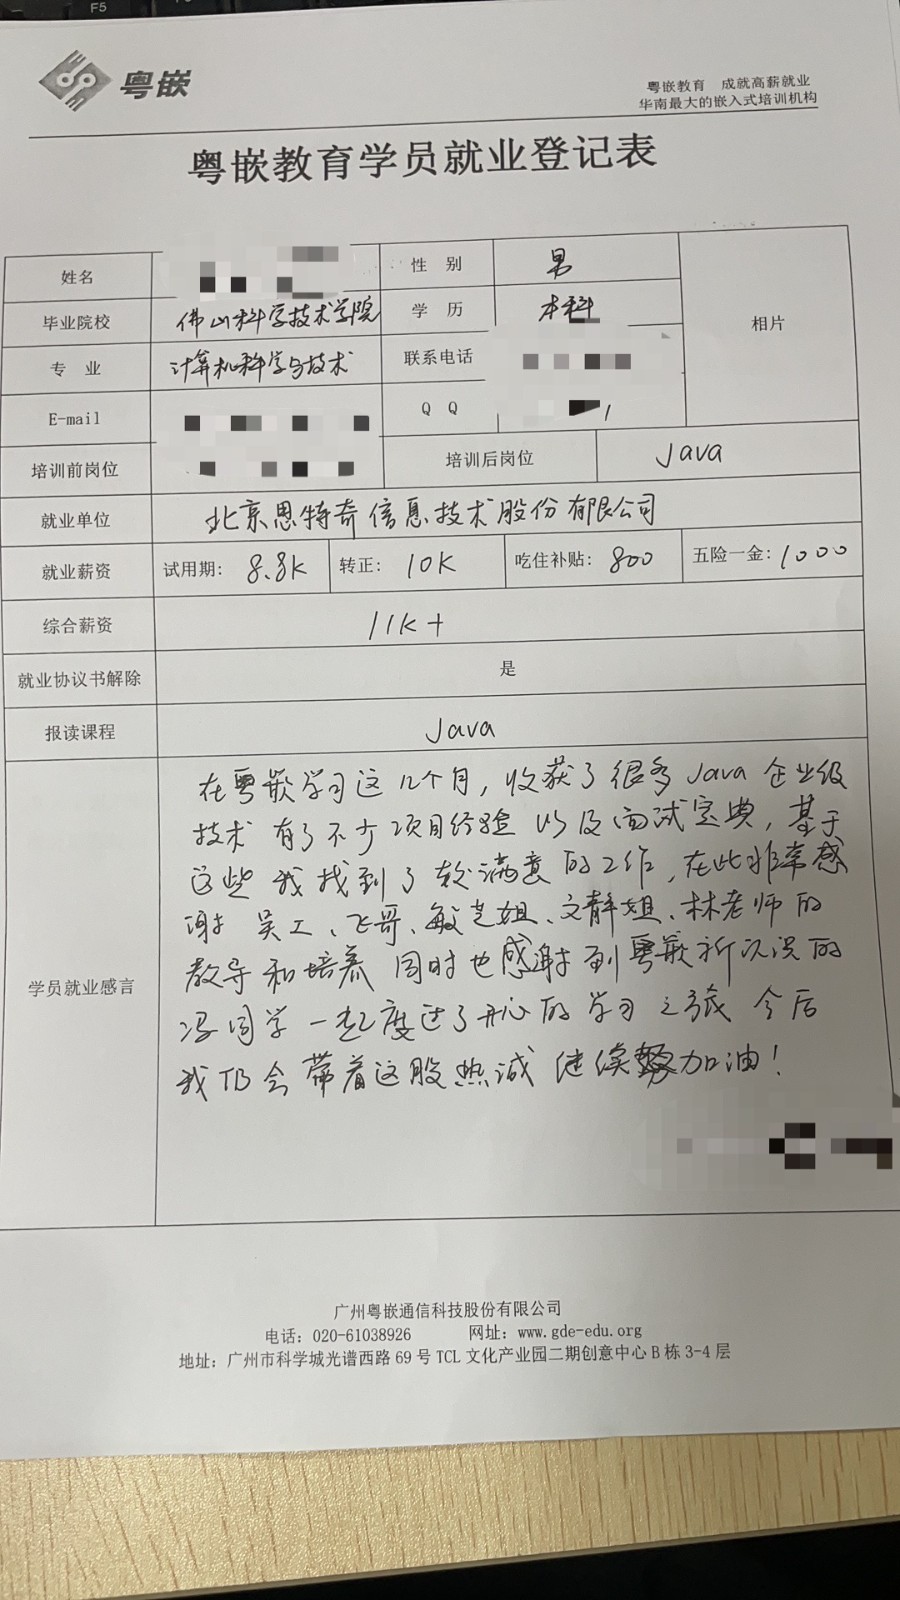 F5
粤嵌
粤嵌教育 成就高薪就业
华南最大的嵌入式培训机构
粤嵌教育学员就业登记表
姓名 性 别 男 相片
毕业院校 佛山科学技术学院 学 历 本科
专 业 计算机科学与技术 联系电话
E-mail Q Q
培训前岗位 培训后岗位 Java
就业单位 北京思特奇信息技术股份有限公司
就业薪资 试用期: 8.8K 转正: 10K 吃住补贴: 800 五险一金: 1000
综合薪资 11K+
就业协议书解除 是
报读课程 Java
学员就业感言
在粤嵌学习这几个月，收获了很多Java企业级
技术 有了不少项目经验 以及面试宝典，基于
这些 我找到了较满意的工作，在此非常感
谢 吴工、飞哥、敏芝姐、文静姐、林老师的
教导和培养 同时也感谢到粤嵌新认识的
冯同学一起度过了开心的学习之旅 今后
我仍会带着这股热诚 继续加油！
广州粤嵌通信科技股份有限公司
电话: 020-61038926 网址: www.gde-edu.org
地址: 广州市科学城光谱西路69号TCL文化产业园二期创意中心B栋3-4层